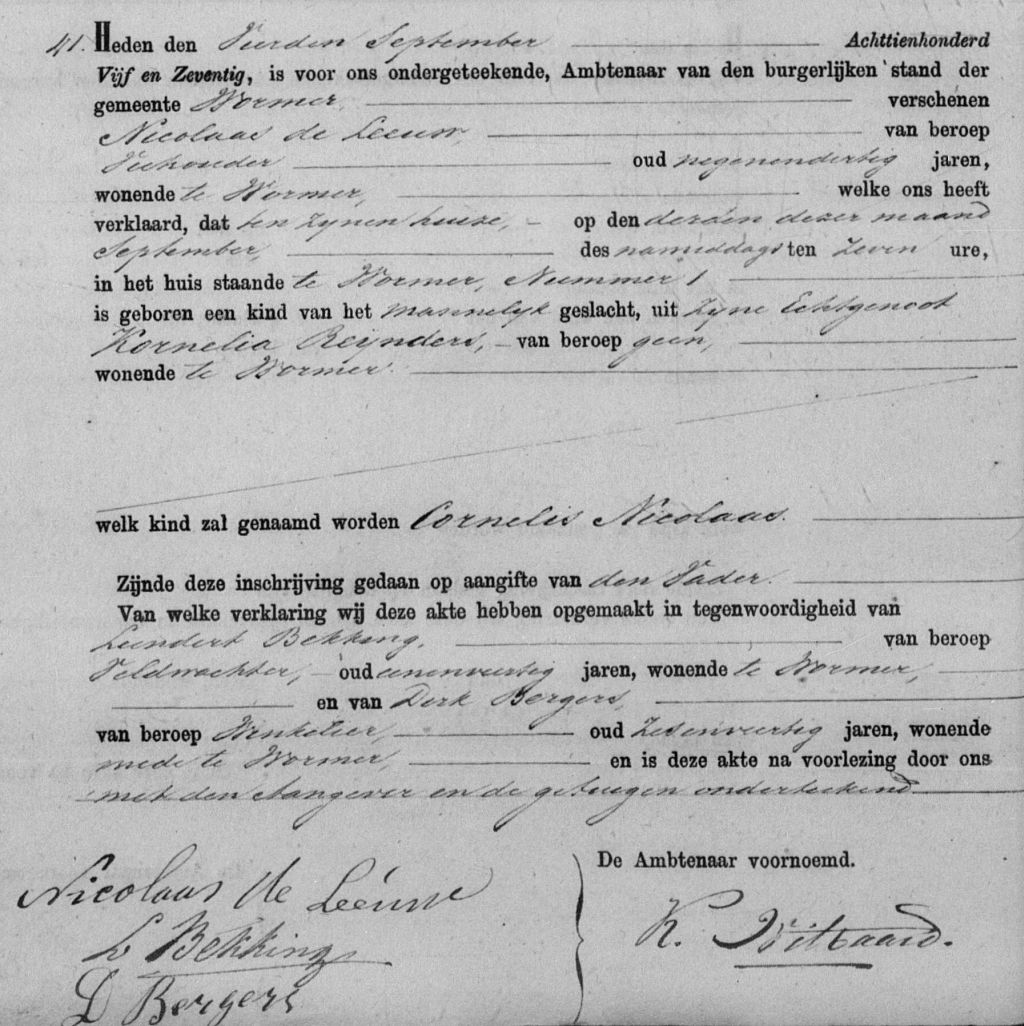 41. Heden den Vierden September Achttienhonderd
Vijf en Zeventig, is voor ons ondergeteekende, Ambtenaar van den burgerlijken stand der
gemeente Wormer, verschenen
Nicolaas de Leeuw, van beroep
Veehouder oud negenendertig jaren,
wonende te Wormer, welke ons heeft
verklaard, dat ten zynen huize, op den derden dezer maand
September, des namiddags ten Zeven ure,
in het huis staande te Wormer, Nummer 1
is geboren een kind van het mannelyk geslacht, uit zyne Echtgenoot
Kornelia Reijnders, van beroep geen,
wonende te Wormer.
welk kind zal genaamd worden Cornelis Nicolaas.
Zijnde deze inschrijving gedaan op aangifte van den Vader.
Van welke verklaring wij deze akte hebben opgemaakt in tegenwoordigheid van
Leendert Bekking, van beroep
Veldwachter, oud eenenveertig jaren, wonende te Wormer,
en van Dirk Bergers,
van beroep Winkelier, oud Zesenveertig jaren, wonende
mede te Wormer, en is deze akte na voorlezing door ons
met den Aangever en de getuigen onderteekend.
De Ambtenaar voornoemd.
Nicolaas de Leeuw
L Bekking
D Bergers
K.